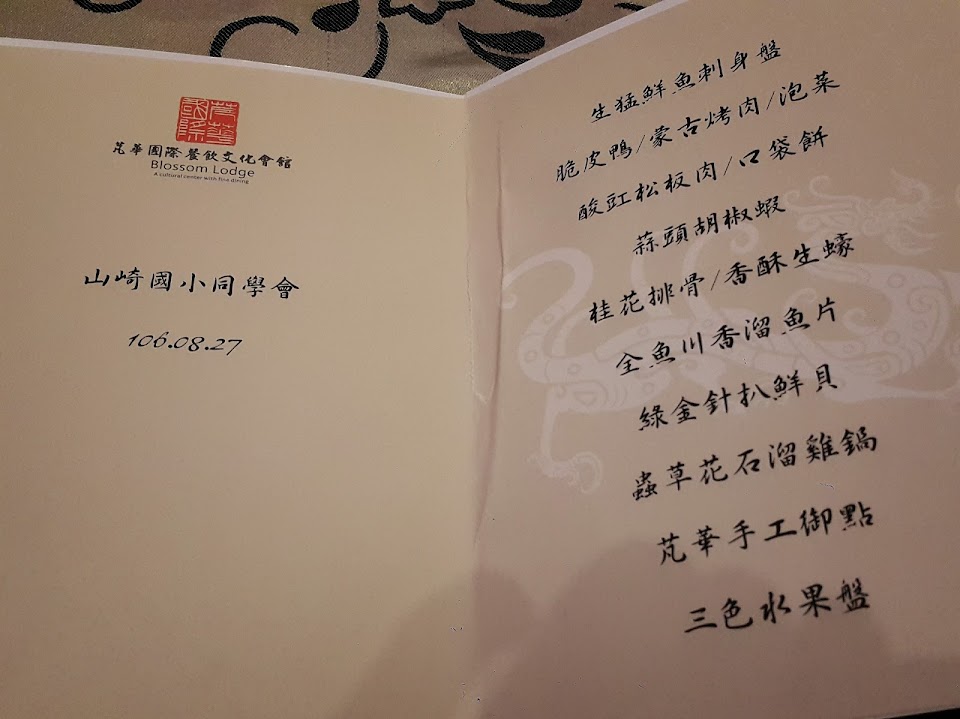 芃華國際
芃華國際餐飲文化會館
Blossom Lodge
A cultural center with fine dining
山崎國小同學會
106.08.27
生猛鮮魚刺身盤
脆皮鴨/蒙古烤肉/泡菜
酸豇松板肉/口袋餅
蒜頭胡椒蝦
桂花排骨/香酥生蠔
全魚川香溜魚片
綠金針扒鮮貝
蟲草花石溜雞鍋
芃華手工御點
三色水果盤